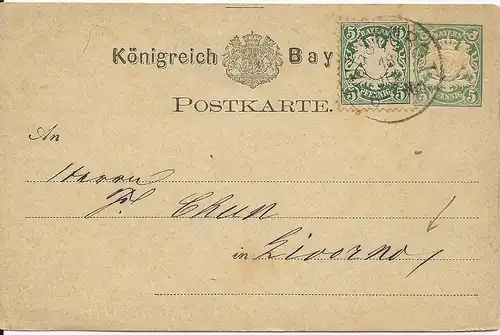 Königreich Bay
BAYERN BAYERN
5 5 5
5 PFENNIG 5 PFENNIG 5
POSTKARTE.
An
Herrn
Chun
in Livorno